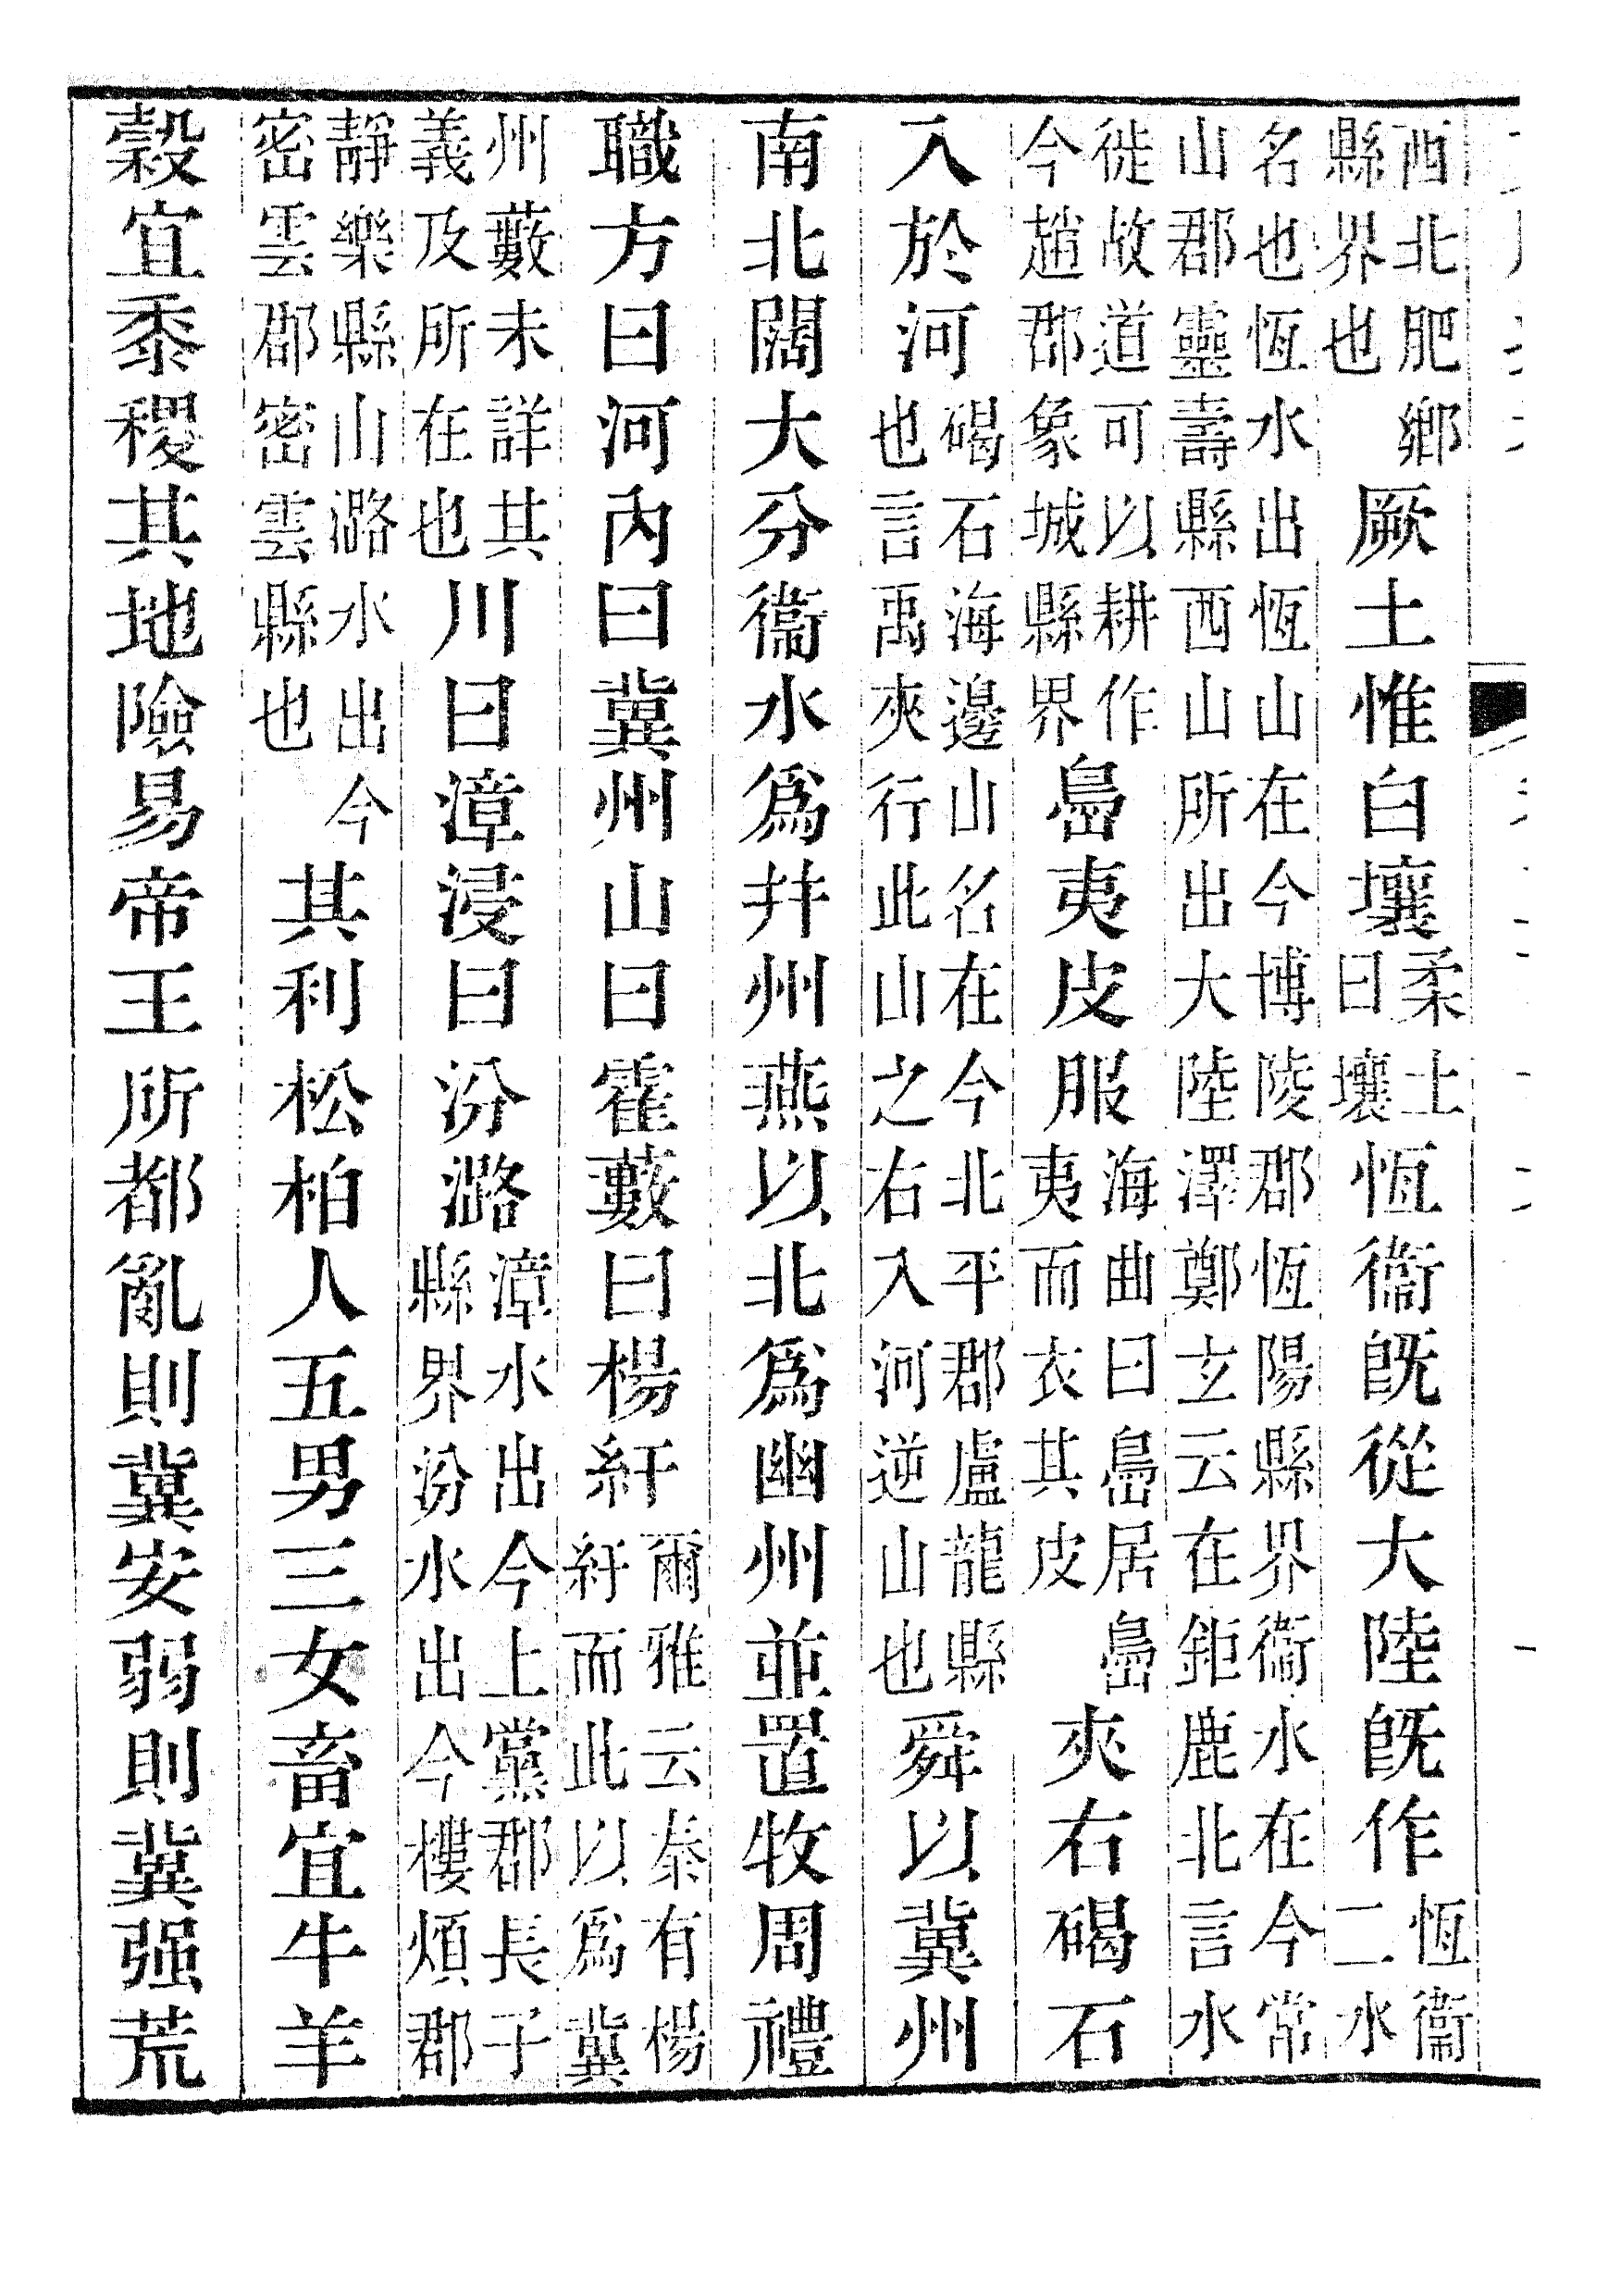 西北肥鄉縣界也厥土惟白壤柔土曰壤恆衞旣從大陸旣作恆衞二水
名也恆水出恆山在今博陵郡恆陽縣界衞水在今常山郡靈壽縣西山所出大陸澤鄭玄云在鉅鹿北言水
徙故道可以耕作今趙郡象城縣界島夷皮服海曲曰島居島夷而衣其皮夾右碣石
入於河碣石海邊山名在今北平郡盧龍縣也言禹夾行此山之右入河逆山也舜以冀州
南北闊大分衞水爲幷州燕以北爲幽州並置牧周禮
職方曰河內曰冀州山曰霍藪曰楊紆爾雅云秦有楊紆而此以爲冀
州藪未詳其義及所在也川曰漳浸曰汾潞漳水出今上黨郡長子縣界汾水出今樓煩郡
靜樂縣山潞水出今密雲郡密雲縣也其利松柏人五男三女畜宜牛羊
穀宜黍稷其地險易帝王所都亂則冀安弱則冀强荒